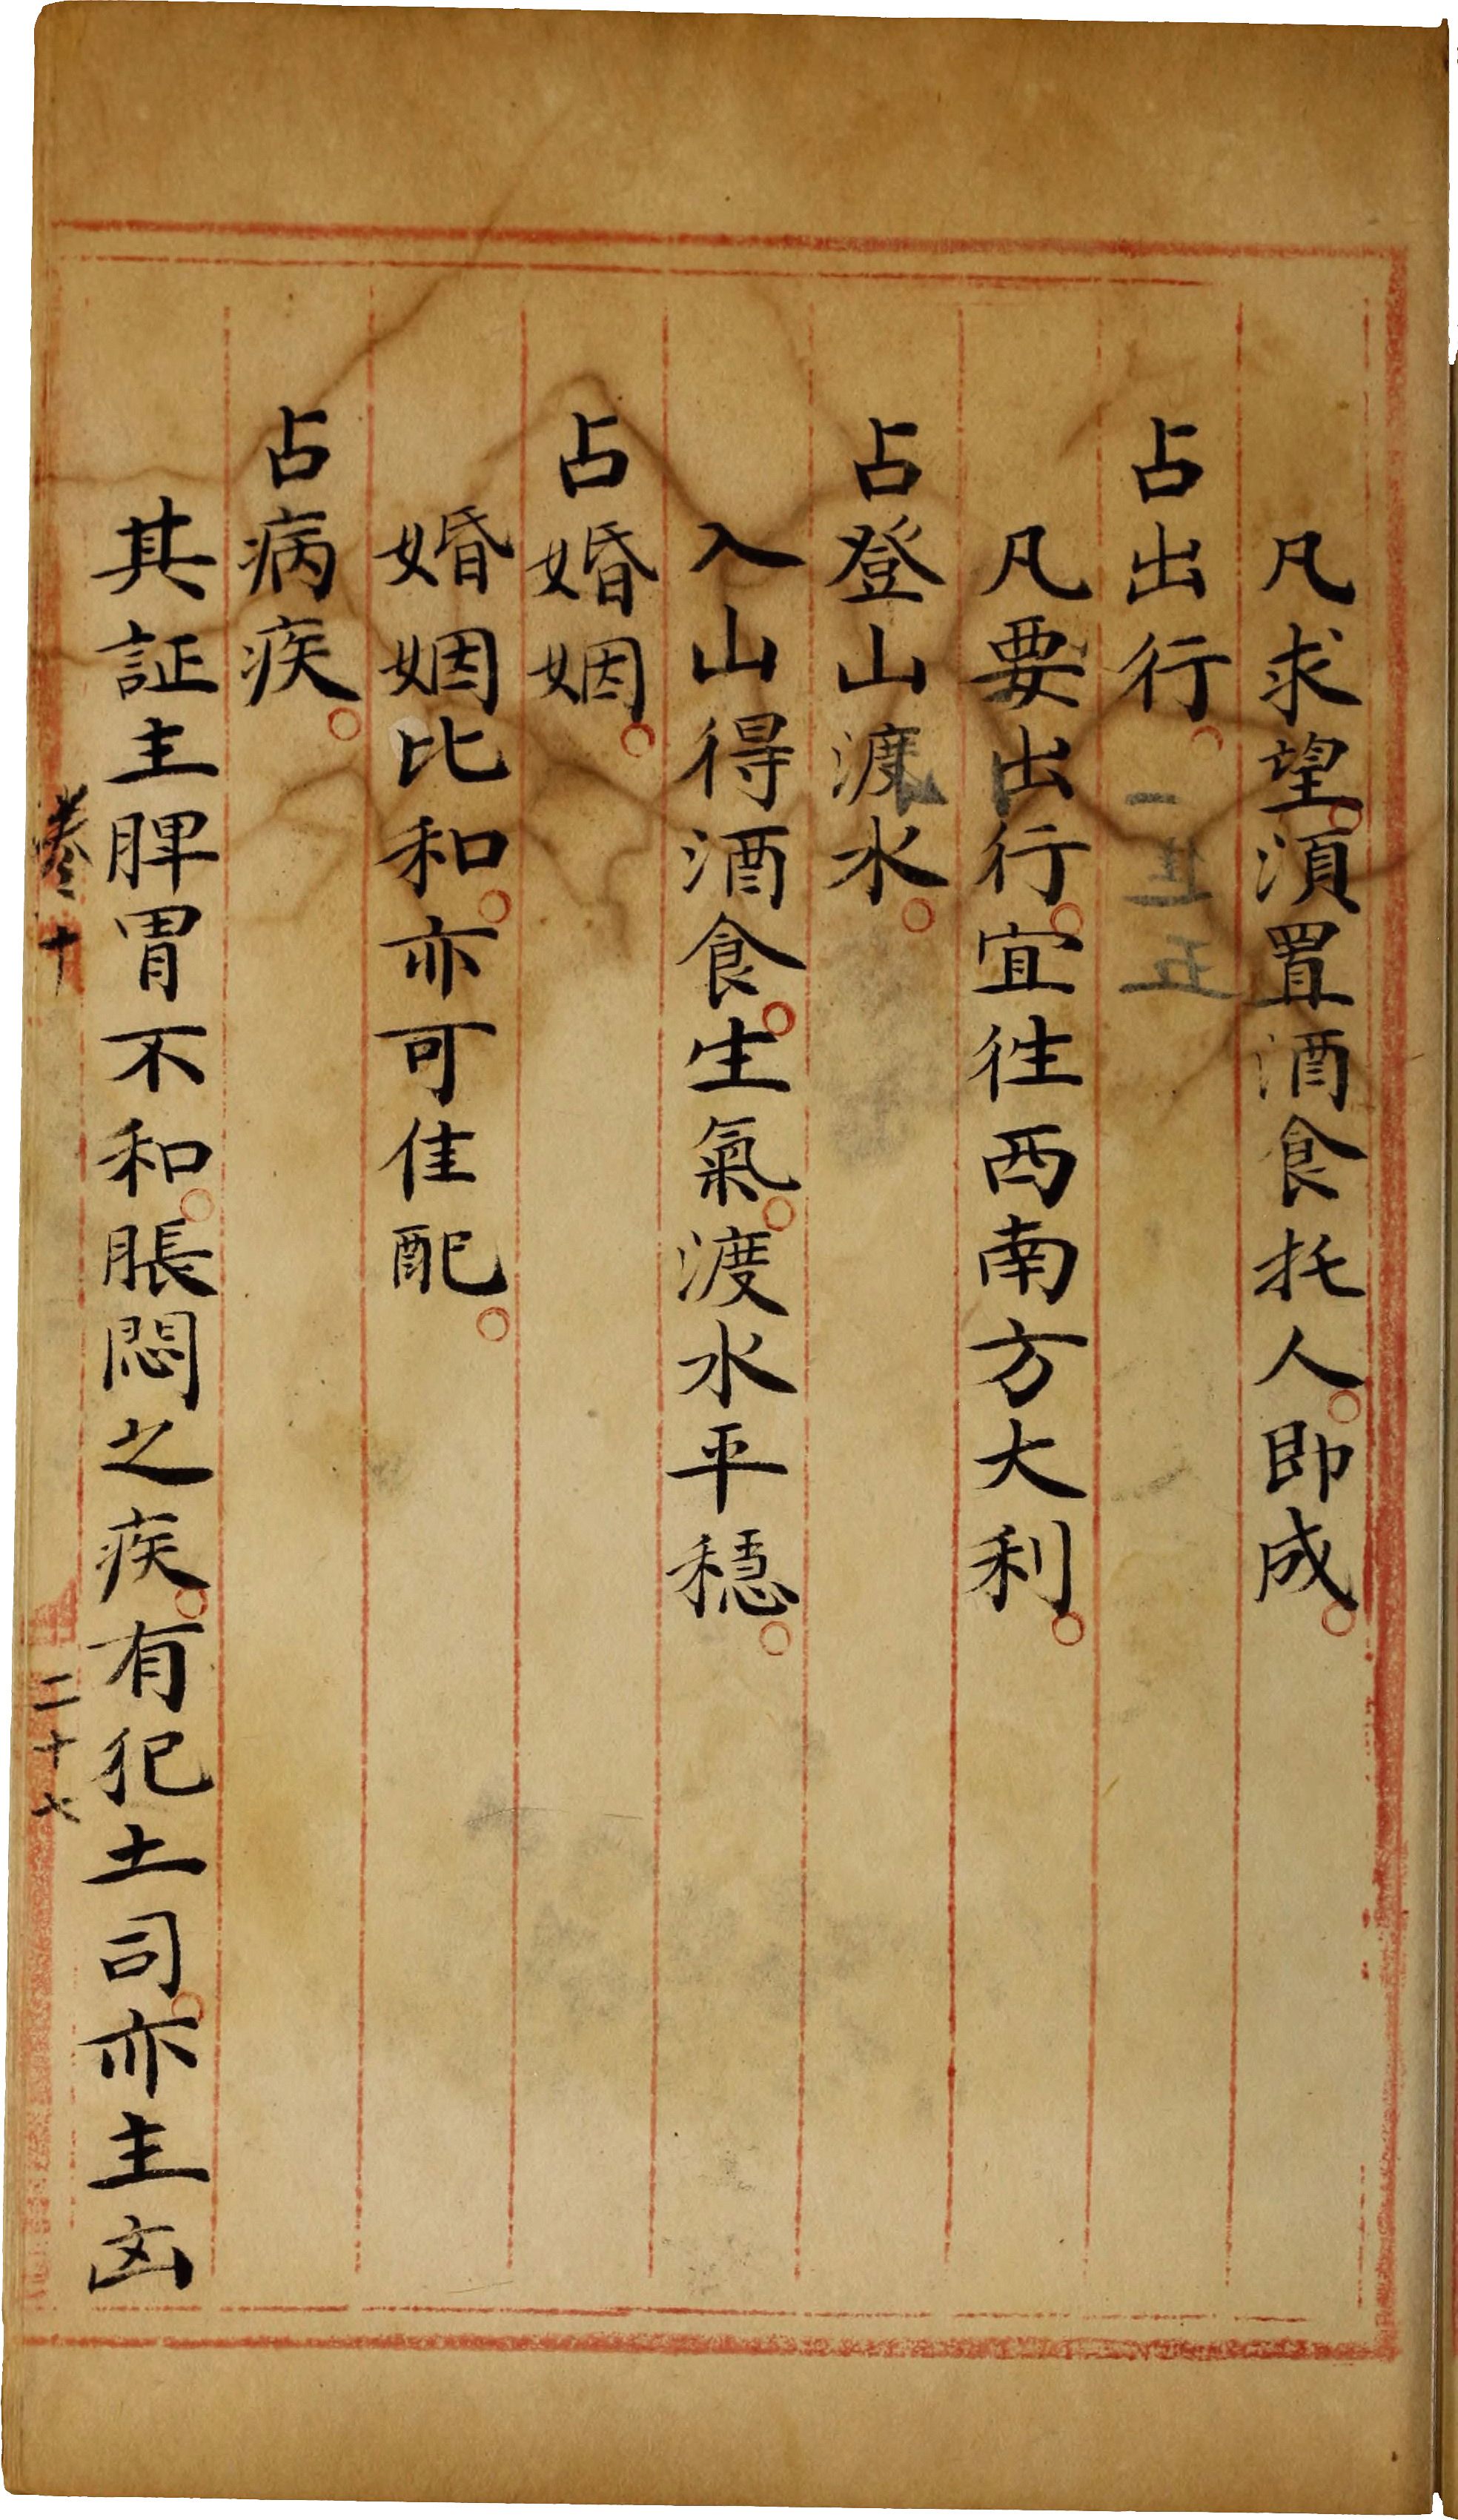 凡求望。湏置酒食托人。即成。
占出行。
凡要出行。宜徃西南方大利。
占登山渡水。
入山得酒食。生氣。渡水平穩。
占婚姻。
婚姻比和。亦可佳配。
占病疾。
其証主脾胃不和。脹悶之疾。有犯土司。亦主凶
卷十
二十七